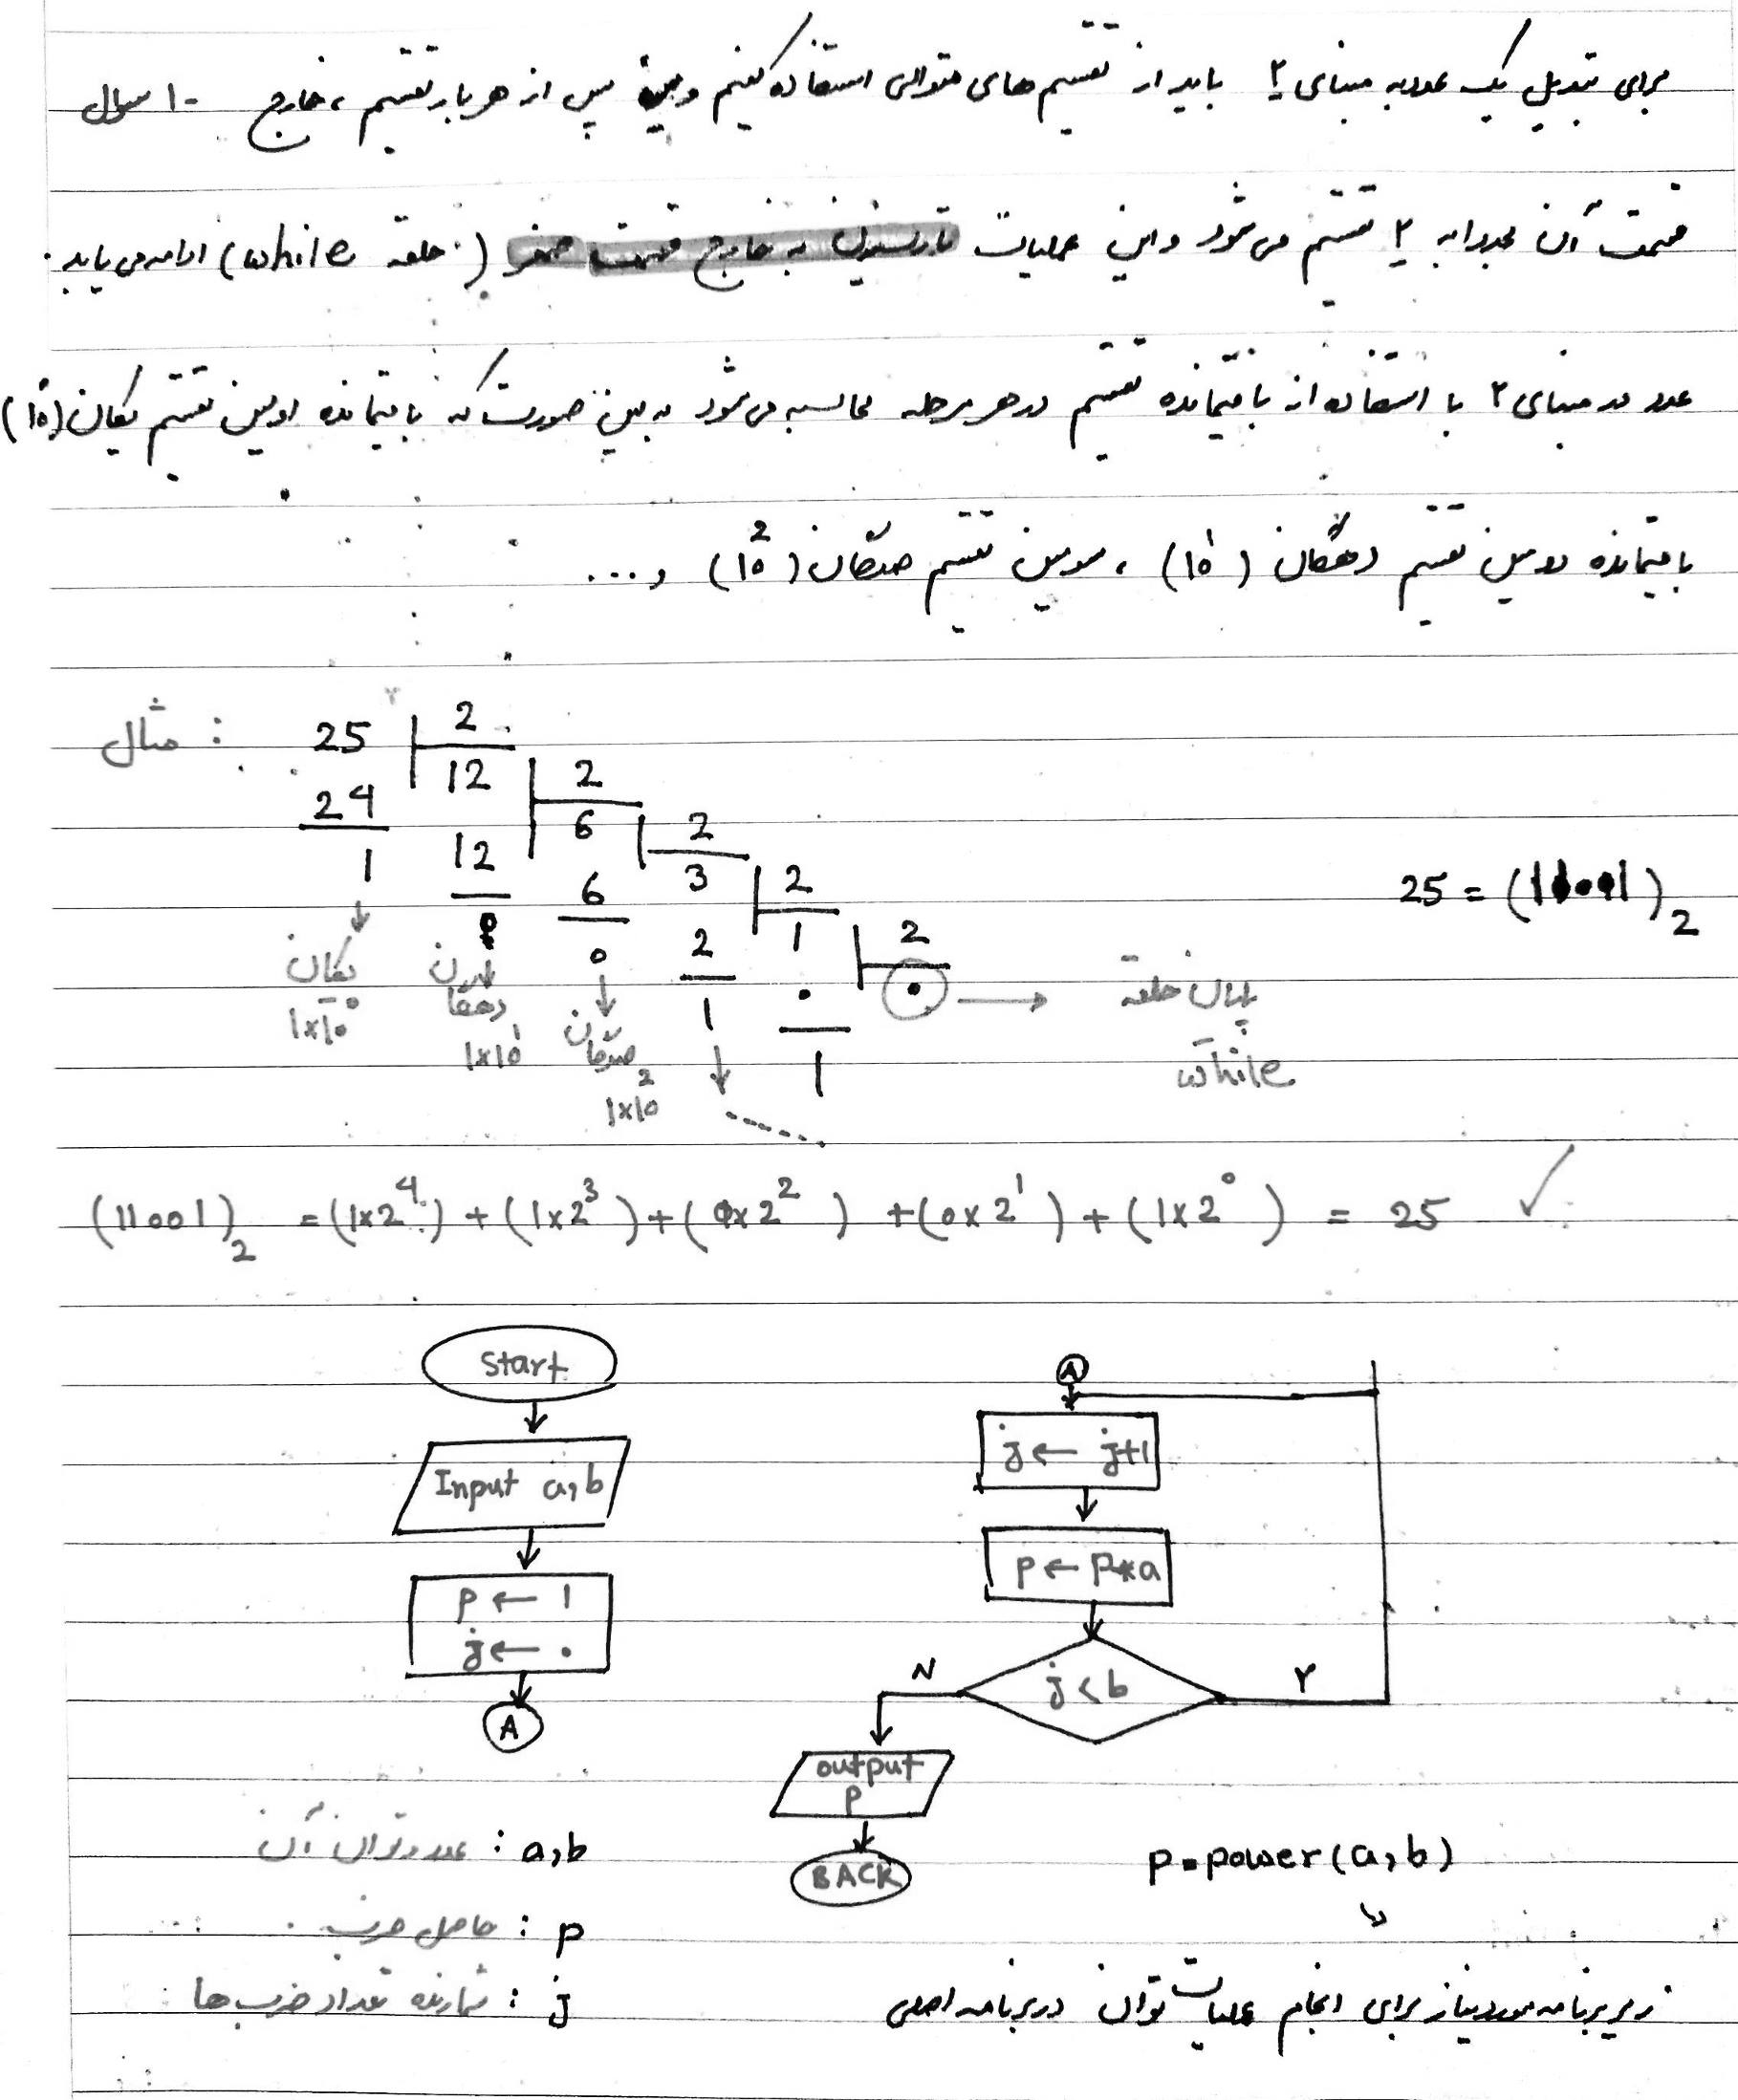 سوال ۱- برای تبدیل یک عدد به مبنای ۲ باید از تقسیم های متوالی استفاده کنیم و پس از هر بار تقسیم ، خارج
قسمت آن مجددا به ۲ تقسیم می شود و این عملیات تا رسیدن به خارج قسمت صفر (حلقه while) ادامه می یابد.
عدد در مبنای ۲ با استفاده از باقیمانده تقسیم در هر مرحله محاسبه می شود به این صورت که باقیمانده اولین تقسیم یکان (10⁰)
باقیمانده دومین تقسیم دهگان (10¹) ، سومین تقسیم صدگان (10²) و ....
مثال :
25 2
24 12 2
1 12 6 2
0 6 3 2
0 2 1 2
1 0 0
1
25 = (11001)₂
یکان 1x10⁰
دهگان 1x10¹
صدگان 1x10²
پایان حلقه
while
(11001)₂ = (1x2⁴) + (1x2³) + (0x2²) + (0x2¹) + (1x2⁰) = 25 ✓
Start
Input a,b
p ← 1
j ← 0
A
A
j ← j+1
p ← p*a
j < b
N
Y
output
p
BACK
a,b : عدد و توان آن
p : حاصل ضرب
j : شمارنده تعداد ضرب ها
p = power (a,b)
زیر برنامه مورد نیاز برای انجام عملیات توان در برنامه اصلی